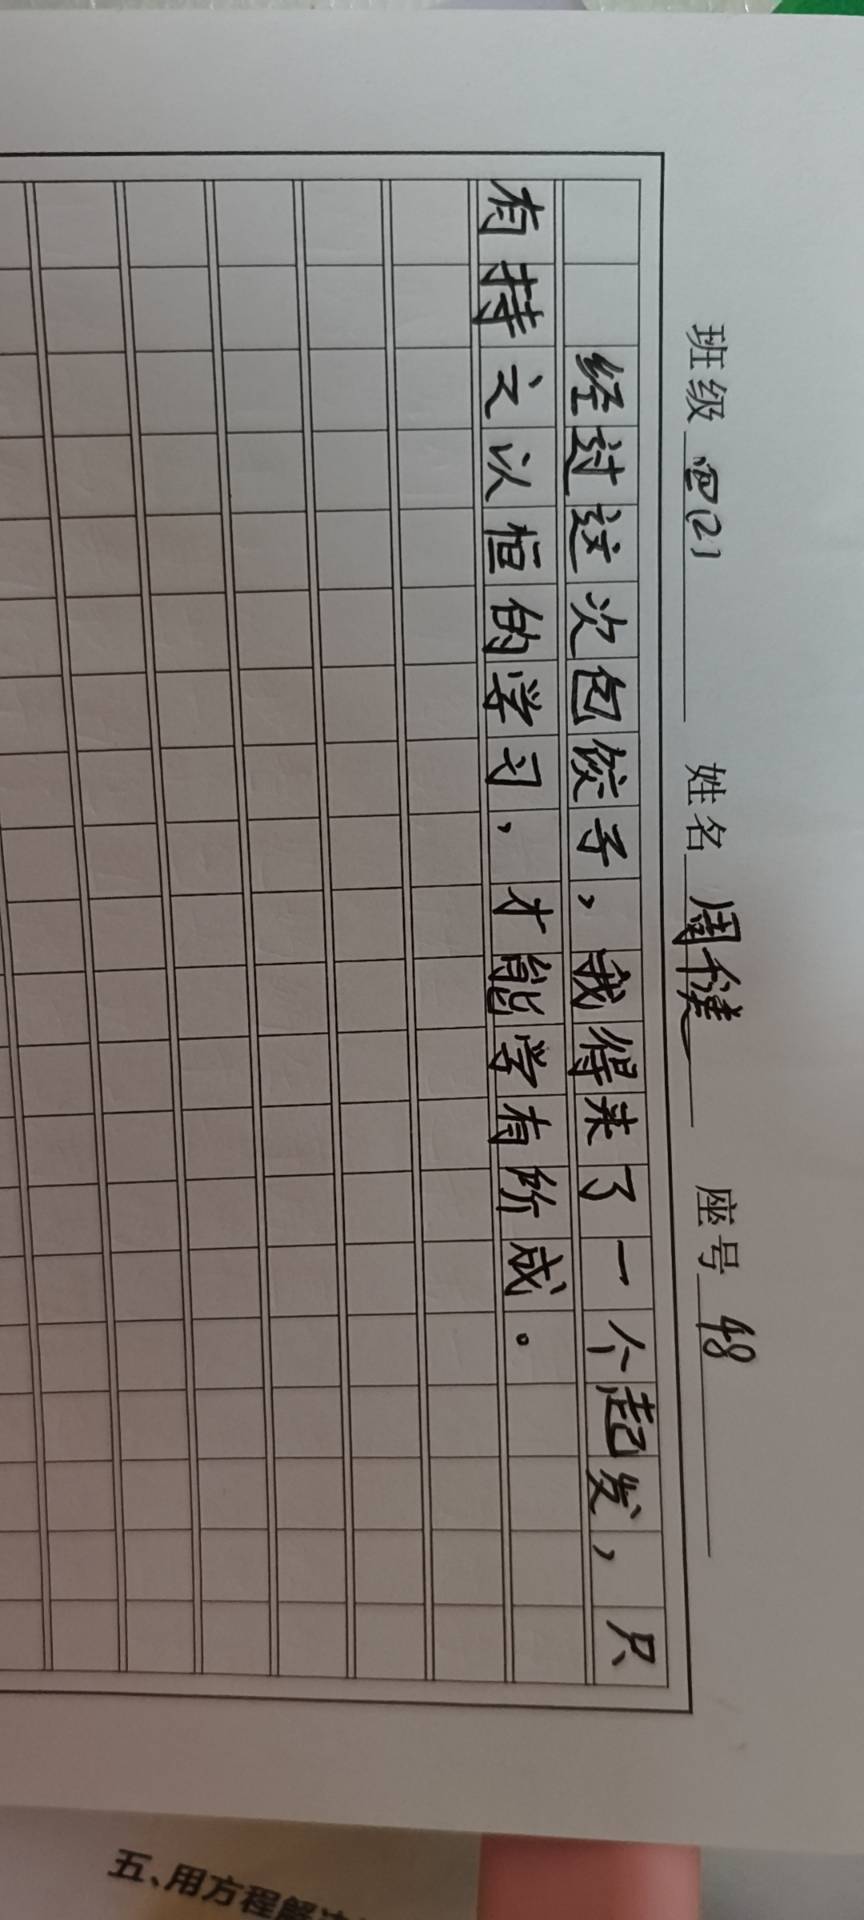 班级 四(2) 姓名 周健 座号 48
经过这次包饺子，我得来了一个起发，只
有持之以恒的学习，才能学有所成。
五、用方程解决